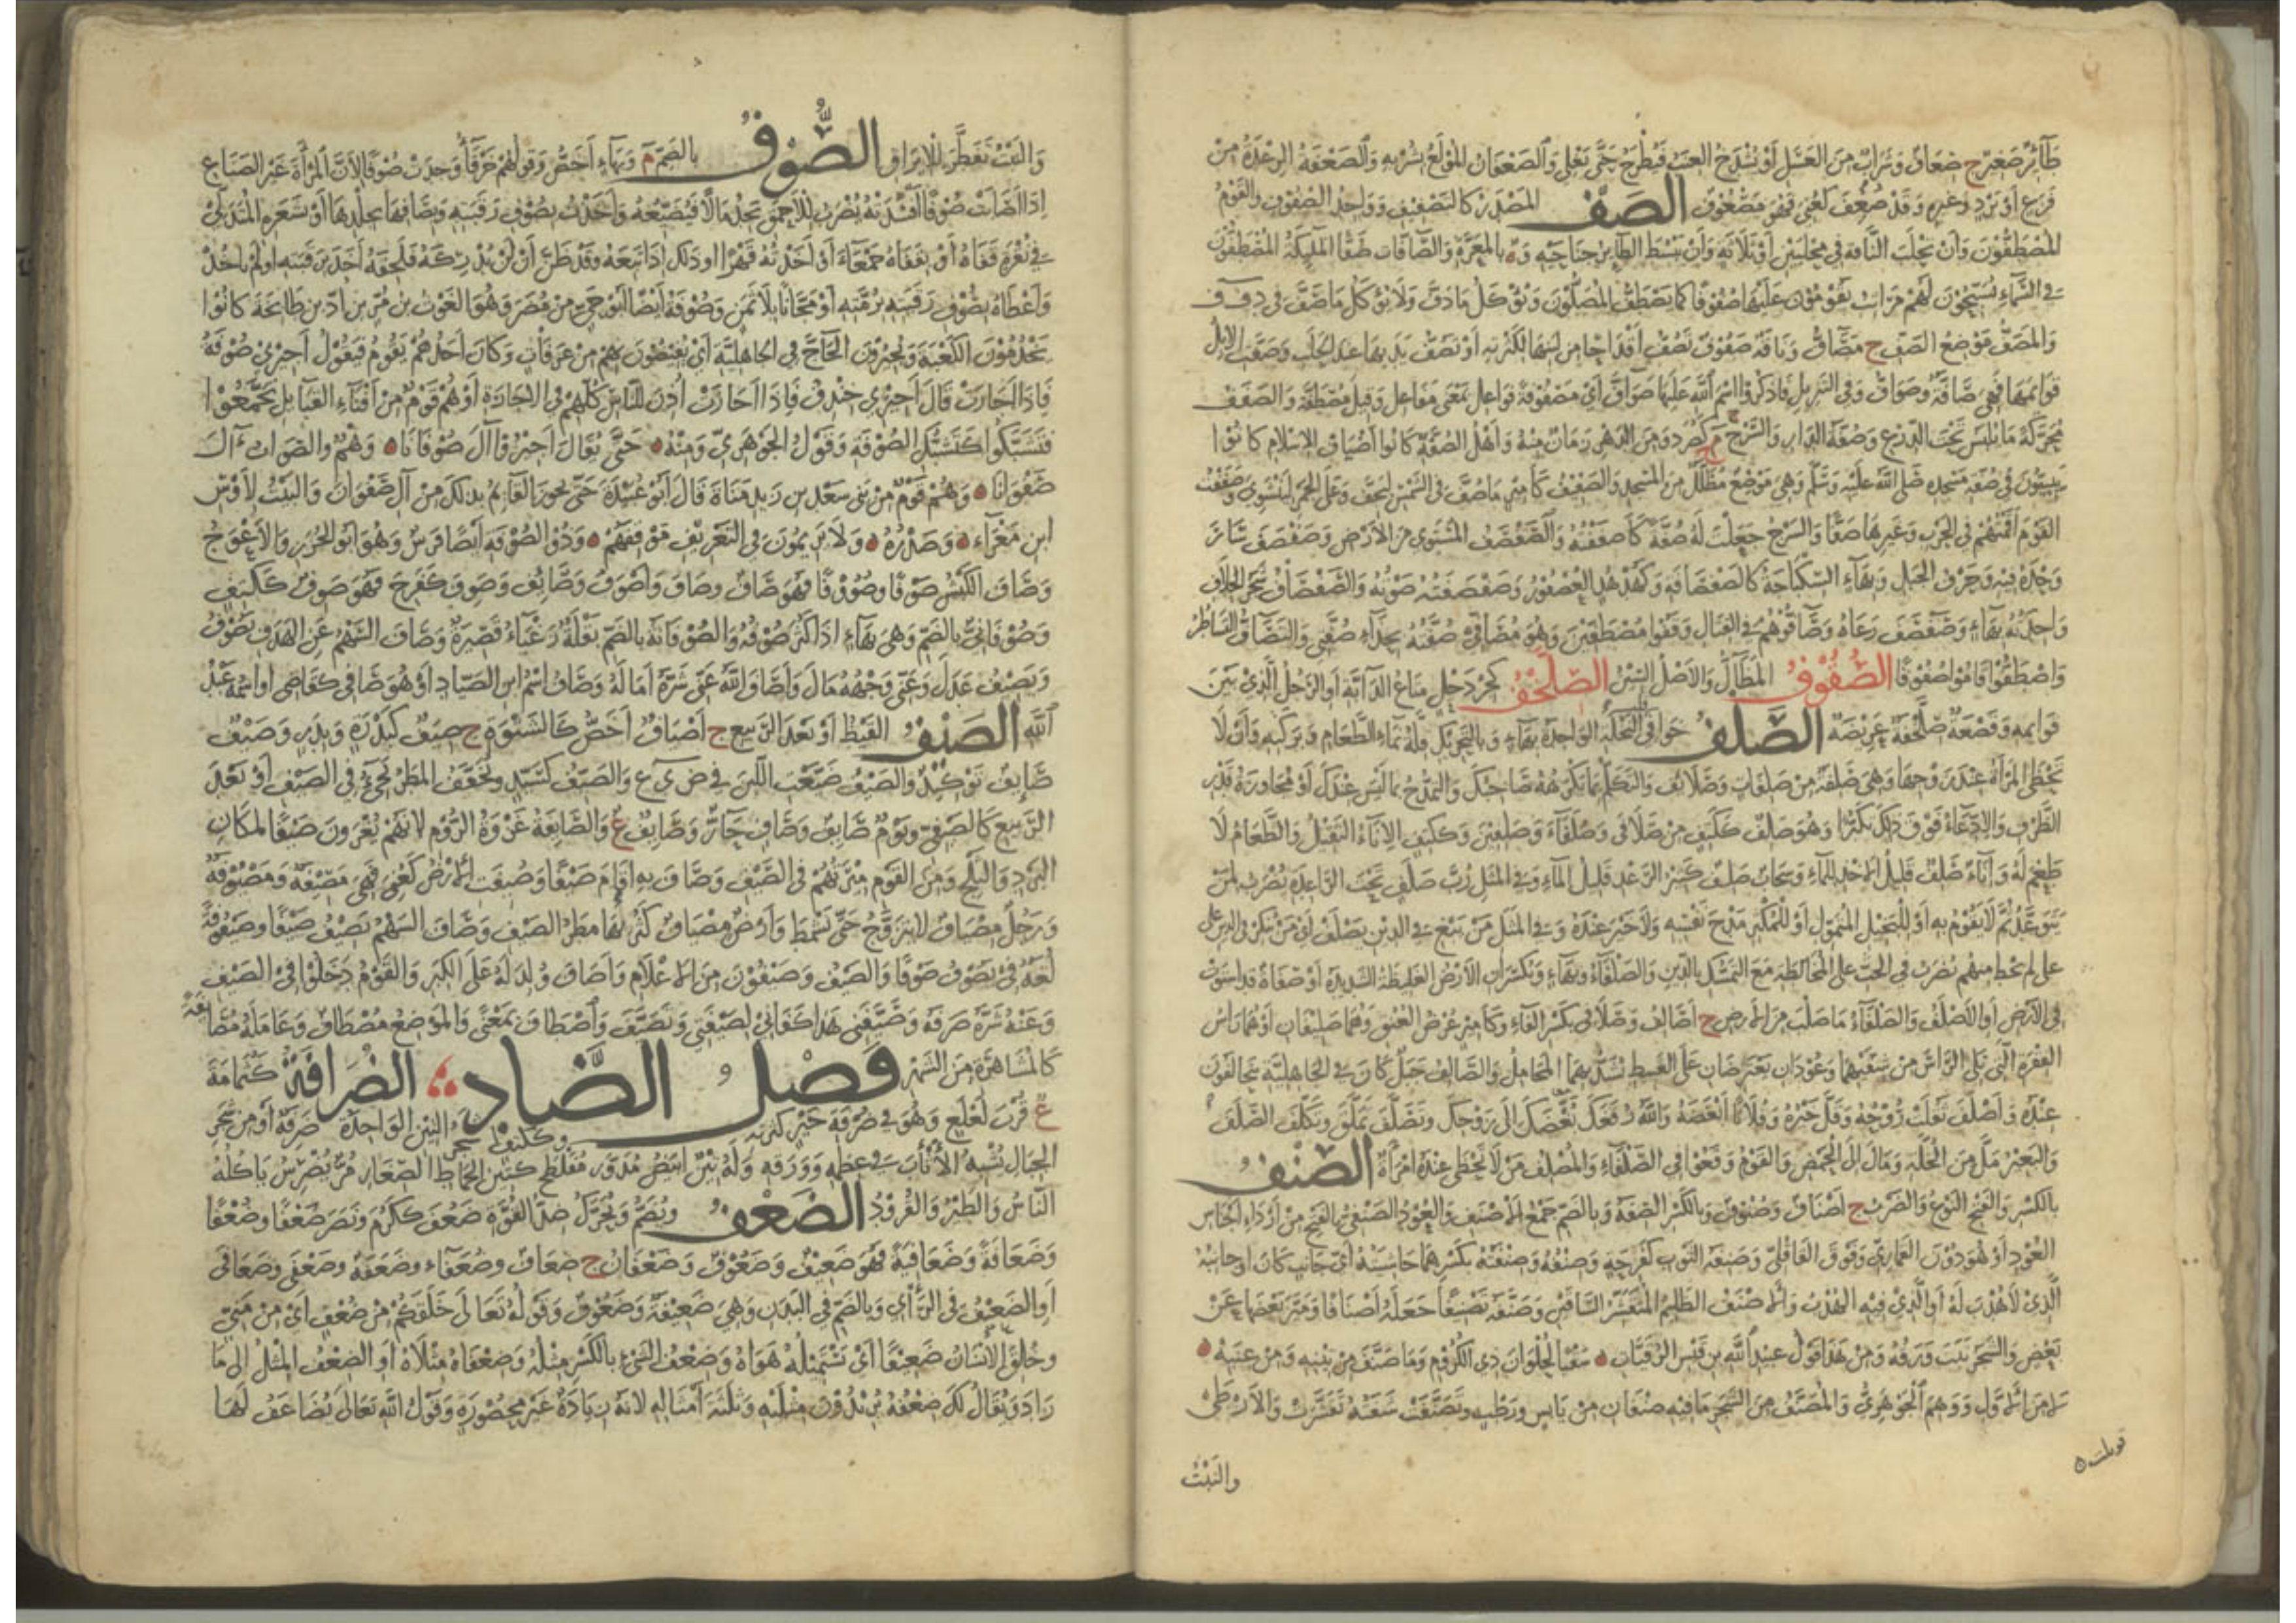 طَائِرٌ صَغِيرٌ ج صِعَافٌ وَشَرَابٌ مِنَ العَسَلِ أَوْ يُشْدَخُ العِنَبُ فَيُطْرَحُ حَتَّى يَغْلِيَ وَالصَّعْفَانُ المُوْلَعُ بِشُرْبِهِ وَالصَّعْفَةُ الرِّعْدَةُ مِنْ
فَزَعٍ أَوْ بَرْدٍ وَغَيْرِهِ وَقَدْ صُعِفَ كَعُنِيَ فَهُوَ مَصْعُوفٌ الصَّفُّ المَصْدَرُ كَالتَّصْفِيفِ وَوَاحِدُ الصُّفُوفِ وَالقَوْمُ
المُصْطَفُّونَ وَأَنْ تَحْلُبَ النَّاقَةَ فِي مِحْلَبَيْنِ أَوْ ثَلَاثَةٍ وَأَنْ يَبْسُطَ الطَّائِرُ جَنَاحَيْهِ وَة بِالمَعَرَّةِ وَالصَّافَّاتِ صَفًّا المَلَائِكَةُ المُصْطَفُّونَ
فِي السَّمَاءِ يُسَبِّحُونَ لَهُمْ مَرَاتِبُ يَقُومُونَ عَلَيْهَا صُفُوفًا كَمَا يَصْطَفُّ المُصَلُّونَ وَيُؤْكَلُ مَا دَفَّ وَلَا يُؤْكَلُ مَا صَفَّ فِي د ف ف
وَالمَصَفُّ مَوْضِعُ الصَّفِّ ج مَصَافُّ وَنَاقَةٌ صَفُوفٌ تَصُفُّ أَقْدَاحًا مِنْ لَبَنِهَا لِكَثْرَتِهِ أَوْ تَصُفُّ يَدَيْهَا عِنْدَ الحَلْبِ وَصَفَّتِ الإِبِلُ
قَوَائِمَهَا فَهِيَ صَافَّةٌ وَصَوَافُّ وَفِي التَّنْزِيلِ فَاذْكُرُوا اسْمَ اللَّهِ عَلَيْهَا صَوَافَّ أَيْ مَصْفُوفَةً فَوَاعِلُ بِمَعْنَى مَفَاعِلَ وَقِيلَ مُصْطَفَّةً وَالصَّفَفُ
مُحَرَّكَةً مَا يُلْبَسُ تَحْتَ الدِّرْعِ وَصُفَّةُ الدَّارِ وَالسَّرْجِ م ج كَصُرَدٍ وَمِنَ الدَّهْرِ زَمَانٌ مِنْهُ وَأَهْلُ الصُّفَّةِ كَانُوا أَضْيَافَ الإِسْلَامِ كَانُوا
يَبِيتُونَ فِي صُفَّةِ مَسْجِدِهِ صَلَّى اللَّهُ عَلَيْهِ وَسَلَّمَ وَهِيَ مَوْضِعٌ مُظَلَّلٌ مِنَ المَسْجِدِ وَالصَّفِيفُ كَأَمِيرٍ مَا صُفَّ فِي الشَّمْسِ لِيَجِفَّ وَعَلَى الجَمْرِ لِيَنْشَوِيَ وَصَفَفْتُ
القَوْمَ أَقَمْتُهُمْ فِي الحَرْبِ وَغَيْرِهَا صَفًّا وَالسَّرْجَ جَعَلْتُ لَهُ صُفَّةً كَأَصْفَفْتُهُ وَالصَّفْصَفُ المُسْتَوِي مِنَ الأَرْضِ وَصَفْصَفَ سَارَ
وَحْدَهُ فِيهِ وَحَرْفُ الجَبَلِ وَبِهَاءٍ السِّكْبَاجَةُ كَالصَّفْصَافَةِ وَكَهُدْهُدٍ العُصْفُورُ وَصَفْصَفَتُهُ صَوْتُهُ وَالصَّفْصَافُ شَجَرُ الخِلَافِ
وَاحِدَتُهُ بِهَاءٍ وَصَفْصَفَ رَعَاهُ وَصَافُّوهُمْ فِي القِتَالِ وَقَفُوا مُصْطَفِّينَ وَهُوَ مُصَافِّيَّ صُفَّتُهُ بِحِذَاءِ صُفَّتِي وَالتَّصَافُّ التَّسَاطُرُ
وَاصْطَفُّوا قَامُوا صُفُوفًا الصُّقُوفُ المَظَالُّ وَالأَصْلُ السِّينُ الصِّلَّخْفُ كَجِرْدَحْلٍ مَتَاعُ الدَّابَّةِ أَوِ الرَّحْلُ الَّذِي بَيْنَ
قَوَائِمِهِ وَقَصْعَةٌ صِلَّخْفَةٌ عَرِيضَةٌ الصَّلْفُ خَوَافِي النَّخْلَةِ الوَاحِدَةُ بِهَاءٍ وَبِالتَّحْرِيكِ قِلَّةُ نَمَاءِ الطَّعَامِ وَبَرَكَتِهِ وَأَنْ لَا
تَحْظَى المَرْأَةُ عِنْدَ زَوْجِهَا وَهِيَ صَلِفَةٌ مِنْ صَلِفَاتٍ وَصَلَائِفَ وَالتَّكَلُّمُ بِمَا يَكْرَهُهُ صَاحِبُكَ وَالتَّمَدُّحُ بِمَا لَيْسَ عِنْدَكَ أَوْ مُجَاوَزَةُ قَدْرِ
الظَّرْفِ وَالِادِّعَاءُ فَوْقَ ذَلِكَ تَكَبُّرًا وَهُوَ صَلِفٌ كَكَتِفٍ مِنْ صَلَافَى وَصُلَفَاءَ وَصَلِفِينَ وَكَكَتِفٍ الإِنَاءُ الثَّقِيلُ وَالطَّعَامُ لَا
طَعْمَ لَهُ وَإِنَاءٌ صَلِفٌ قَلِيلُ الأَخْذِ لِلْمَاءِ وَسَحَابٌ صَلِفٌ كَثِيرُ الرَّعْدِ قَلِيلُ المَاءِ وَفِي المَثَلِ رُبَّ صَلَفٍ تَحْتَ الرَّاعِدَةِ يُضْرَبُ لِمَنْ
يَتَوَعَّدُ ثُمَّ لَا يَقُومُ بِهِ أَوْ لِلْبَخِيلِ المُتَمَوِّلِ أَوْ لِلْمُكْثِرِ مَدْحَ نَفْسِهِ وَلَا خَيْرَ عِنْدَهُ وَفِي المَثَلِ مَنْ يَبْغِ فِي الدِّينِ يَصْلَفْ أَيْ مَنْ
على لم يحظ منهم يُضْرَبُ فِي الحَثِّ عَلَى المُخَالَطَةِ مَعَ التَّمَسُّكِ بِالدِّينِ وَالصَّلْفَاءُ وَبِهَاءٍ وَيُكْسَرَانِ الأَرْضُ الغَلِيظَةُ الشَّدِيدَةُ أَوْ صَفَاةٌ قَدِ اسْتَوَتْ
فِي الأَرْضِ أَوِ الأَصْلَفُ وَالصَّلْفَاءُ مَا صَلُبَ مِنَ الأَرْضِ ج أَصَالِفُ وَصَلَافِي بِكَسْرِ الفَاءِ وَكَأَمِيرٍ عُرْضُ العُنُقِ وَهُمَا صَلِيفَانِ أَوْ هُمَا رَأْسُ
الفِقْرَةِ الَّتِي تَلِي الرَّأْسَ مِنْ شِقَّيْهِمَا وَعُودَانِ يَعْتَرِضَانِ عَلَى الغَبِيطِ تُشَدُّ بِهِمَا المَحَامِلُ وَالصَّالِفُ جَبَلٌ كَانَ فِي الجَاهِلِيَّةِ يَتَحَالَفُونَ
عِنْدَهُ وَأَصْلَفَ ثَقُلَتْ رُوْحُهُ وَقَلَّ خَيْرُهُ وَفُلَانًا أَبْغَضَهُ وَاللَّهُ رُفْغَكَ بَغَّضَكَ إِلَى زَوْجِكَ وَتَصَلَّفَ تَمَلَّقَ وَتَكَلَّفَ الصَّلَفَ
وَالبَعِيرُ مَلَّ مِنَ الخُلَّةِ وَمَالَ إِلَى الحَمْضِ وَالقَوْمُ وَقَعُوا فِي الصَّلْفَاءِ وَالمُصْلِفُ مَنْ لَا تَحْظَى عِنْدَهُ امْرَأَةٌ الصِّنْفُ
بِالكَسْرِ وَالفَتْحِ النَّوْعُ وَالضَّرْبُ ج أَصْنَافٌ وَصُنُوفٌ وَبِالكَسْرِ الصِّفَةُ وَبِالضَّمِّ جَمْعُ الأَصْنَفِ وَالعُودُ الصَّنْفِيُّ بِالفَتْحِ مِنْ أَرْدَإِ أَجْنَاسِ
العُودِ أَوْ هُوَ دُونَ القَمَارِيِّ وَفَوْقَ القَاقُلِّيِّ وَصَنِفَةُ الثَّوْبِ كَفَرِحَةٍ وَصِنْفُهُ وَصِنْفَتُهُ بِكَسْرِهِمَا حَاشِيَتُهُ أَيَّ جَانِبٍ كَانَ أَوْ جَانِبُهُ
الَّذِي لَا هُدْبَ لَهُ أَوِ الَّذِي فِيهِ الهُدْبُ وَالأَصْنَفُ الظَّلِيمُ المُتَقَشِّرُ السَّاقَيْنِ وَصَنَّفَهُ تَصْنِيفًا جَعَلَهُ أَصْنَافًا وَمَيَّزَ بَعْضَهَا عَنْ
بَعْضٍ وَالشَّجَرُ نَبَتَ وَرَقُهُ وَمِنْ هَذَا قَوْلُ عُبَيْدِ اللَّهِ بْنِ قَيْسِ الرُّقَيَّاتِ سَقْيًا لِحُلْوَانَ ذِي الكُرُومِ وَمَا صَنَّفَ مِنْ تِينِهِ وَمِنْ عِنَبِهْ
لَا مِنَ الأَوَّلِ وَوَهِمَ الجَوْهَرِيُّ وَالمُصَنَّفُ مِنَ الشَّجَرِ مَا فِيهِ صِنْفَانِ مِنْ يَابِسٍ وَرَطْبٍ وَتَصَنَّفَتْ شَفَتُهُ تَقَشَّرَتْ وَالأَرْطَى
والنَّبْتُ
قوبلت
وَالنَّبْتُ تَفَطَّرَ لِلْإِيرَاقِ الصُّوفُ بِالضَّمِّ م وَبِهَاءٍ أَخَصُّ وَقَوْلُهُمْ خَرْقَاءُ وَجَدَتْ صُوفًا لِأَنَّ المَرْأَةَ غَيْرَ الصَّنَاعِ
إِذَا أَصَابَتْ صُوفًا أَفْسَدَتْهُ يُضْرَبُ لِلْأَحْمَقِ يَجِدُ مَالًا فَيُضَيِّعُهُ وَأَخَذْتُ بِصُوفِ رَقَبَتِهِ وَبِصَافِهَا بِجِلْدِهَا أَوْ بِشَعَرِهِ المُتَدَلِّي
فِي نُقْرَةِ قَفَاهُ أَوْ بِقَفَاهُ جَمْعَاءَ أَوْ أَخَذْتُهُ قَهْرًا أَوْ ذَلِكَ إِذَا تَبِعَهُ وَقَدْ ظَنَّ أَنْ لَنْ يُدْرِكَهُ فَلَحِقَهُ أَخَذَ بِرَقَبَتِهِ أَوْ لَمْ يَأْخُذْ
وَأَعْطَاهُ بِصُوفِ رَقَبَتِهِ بِرُمَّتِهِ أَوْ مَجَّانًا بِلَا ثَمَنٍ وَصُوفَةُ أَيْضًا أَبُو حَيٍّ مِنْ مُضَرَ وَهُوَ الغَوْثُ بْنُ مُرِّ بْنِ أُدِّ بْنِ طَابِخَةَ كَانُوا
يَخْدُمُونَ الكَعْبَةَ وَيُجِيزُونَ الحَاجَّ فِي الجَاهِلِيَّةِ أَيْ يُفِيضُونَ بِهِمْ مِنْ عَرَفَاتٍ وَكَانَ أَحَدُهُمْ يَقُومُ فَيَقُولُ أَجِيزِي صُوفَةُ
فَإِذَا أَجَازَتْ قَالَ أَجِيزِي خِنْدِفُ فَإِذَا أَجَازَتْ أُذِنَ لِلنَّاسِ كُلِّهِمْ فِي الإِجَازَةِ أَوْ هُمْ قَوْمٌ مِنْ أَفْنَاءِ القَبَائِلِ تَجَمَّعُوْا
فَتَشَبَّكُوا كَتَشَبُّكِ الصُّوفَةِ وَقَوْلُ الجَوْهَرِيِّ وَمِنْهُ حَتَّى يُقَالَ أَجِيزُوا آلَ صُوفَانَا وَهَمٌ وَالصَّوَابُ آلَ
صَفْوَانَا وَهُمْ قَوْمٌ مِنْ بَنِي سَعْدِ بْنِ زَيْدِ مَنَاةَ قَالَ أَبُو عُبَيْدَةَ حَتَّى يَجُوزَ القَائِمُ بِذَلِكَ مِنْ آلِ صَفْوَانَ وَالبَيْتُ لِأَوْسِ
ابْنِ مَغْرَاءَ وَصَدْرُهُ وَلَا يَرِيمُونَ فِي التَّعْرِيفِ مَوْقِفَهُمْ وَذُو الصُّوفَةِ أَيْضًا فَرَسٌ وَهُوَ أَبُو الخُزَزِ وَالأَعْوَجِ
وَصَافَ الكَبْشُ صَوْفًا وَصُوُوفًا فَهُوَ صَافٌ وَصَافٍ وَأَصْوَفُ وَصَائِفٌ وَصَوِفَ كَفَرِحَ فَهُوَ صَوِفٌ كَكَتِفٍ
وَصُوفَانِيٌّ بِالضَّمِّ وَهِيَ بِهَاءٍ إِذَا كَثُرَ صُوفُهُ وَالصُّوفَانَةُ بِالضَّمِّ بَقْلَةٌ زَغْبَاءُ قَصِيرَةٌ وَصَافَ السَّهْمُ عَنِ الهَدَفِ يَصُوفُ
وَيَصِيفُ عَدَلَ وَعَنِّي وَجْهُهُ مَالَ وَأَصَافَ اللَّهُ عَنِّي شَرَّهُ أَمَالَهُ وَصَافُ اسْمُ ابْنِ الصَّيَّادِ أَوْ هُوَ صَافِي كَقَاضِي أَوِ اسْمُهُ عَبْدُ
اللَّهِ الصَّيْفُ القَيْظُ أَوْ بَعْدَ الرَّبِيعِ ج أَصْيَافٌ أَخَصُّ كَالشَّتْوَةِ ج صِيَفٌ كَبَدْرَةٍ وَبِدَرٍ وَصَيْفٌ
صَائِفٌ تَوْكِيدٌ وَالصَّيْفَ ضَيَّعْتِ اللَّبَنَ فِي ض ي ع وَالصَّيِّفُ كَسَيِّدٍ وَيُخَفَّفُ المَطَرُ يَجِيءُ فِي الصَّيْفِ أَوْ بَعْدَ
الرَّبِيعِ كَالصَّيْفِيِّ وَيَوْمٌ صَائِفٌ وَصَافٍ حَارٌّ وَصَائِفٌ ع وَالصَّائِفَةُ غَزْوَةُ الرُّومِ لِأَنَّهُمْ يُغْزَوْنَ صَيْفًا لِمَكَانِ
البَرْدِ وَالثَّلْجِ وَمِنَ القَوْمِ مِيرَتُهُمْ فِي الصَّيْفِ وَصَافَ بِهِ أَقَامَ صَيْفًا وَصِيفَتِ الأَرْضُ كَعُنِيَ فَهِيَ مَصِيفَةٌ وَمَصْيُوفَةٌ
وَرَجُلٌ مِصْيَافٌ لَا يَتَزَوَّجُ حَتَّى يَشْمَطَ وَأَرْضٌ مِصْيَافٌ كَثُرَ بِهَا مَطَرُ الصَّيْفِ وَصَافَ السَّهْمُ يَصِيفُ صَيْفًا وَصَيْفُوفَةً
لُغَةٌ فِي يَصُوفُ صَوْفًا وَالصَّيْفُ وَصَيْفُونُ مِنَ الأَعْلَامِ وَأَصَافَ وُلِدَ لَهُ عَلَى الكِبَرِ وَالقَوْمُ دَخَلُوا فِي الصَّيْفِ
وَعَنْهُ شَرَّهُ صَرَفَهُ وَصَيَّفَنِي هَذَا كَفَانِي لِصَيْفَتِي وَتَصَيَّفَ وَاصْطَافَ بِمَعْنًى وَالمَوْضِعُ مُصْطَافٌ وَعَامَلَهُ مُصَايَفَةً
كَالمُشَاهَرَةِ مِنَ الشَّهْرِ فَصْلُ الضَّادِ الضُّرَافَةُ كَثُمَامَةَ
ع قُرْبَ لَعْلَعٍ وَهُوَ فِي ضَرْفَةِ خَيْرٍ كَثْرَتِهِ وَكَكَتِفٍ شَجَرُ التِّينِ الوَاحِدَةُ ضَرِفَةٌ أَوْ مِنْ شَجَرِ
الجِبَالِ يُشْبِهُ الأَثْأَبَ فِي عِظَمِهِ وَوَرَقِهِ وَلَهُ تِينٌ أَبْيَضُ مُدَوَّرٌ مُفَلْطَحٌ كَتِينِ الحَمَاطِ الصِّغَارِ مُرٌّ يُضَرِّسُ يَأْكُلُهُ
النَّاسُ وَالطَّيْرُ وَالقُرُودُ الضَّعْفُ وَيُضَمُّ وَيُحَرَّكُ ضِدُّ القُوَّةِ ضَعُفَ كَكَرُمَ وَنَصَرَ ضَعْفًا وَضُعْفًا
وَضَعَافَةً وَضَعَافِيَةً فَهُوَ ضَعِيفٌ وَضَعُوفٌ وَضَعْفَانُ ج ضِعَافٌ وَضُعَفَاءُ وَضَعَفَةٌ وَضَعْفَى وَضَعَافَى
أَوِ الضَّعْفُ فِي الرَّأْيِ وَبِالضَّمِّ فِي البَدَنِ وَهِيَ ضَعِيفَةٌ وَضَعُوفٌ وَقَوْلُهُ تَعَالَى خَلَقَكُمْ مِنْ ضُعْفٍ أَيْ مِنْ مَنِيٍّ
وَخُلِقَ الإِنْسَانُ ضَعِيفًا أَيْ يَسْتَمِيلُهُ هَوَاهُ وَضِعْفُ الشَّيْءِ بِالكَسْرِ مِثْلُهُ وَضِعْفَاهُ مِثْلَاهُ أَوِ الضِّعْفُ المِثْلُ إِلَى مَا
زَادَ وَيُقَالُ لَكَ ضِعْفُهُ يُرِيدُونَ مِثْلَيْهِ وَثَلَاثَةَ أَمْثَالِهِ لِأَنَّهُ زِيَادَةٌ غَيْرُ مَحْصُورَةٍ وَقَوْلُ اللَّهِ تَعَالَى يُضَاعَفْ لَهَا